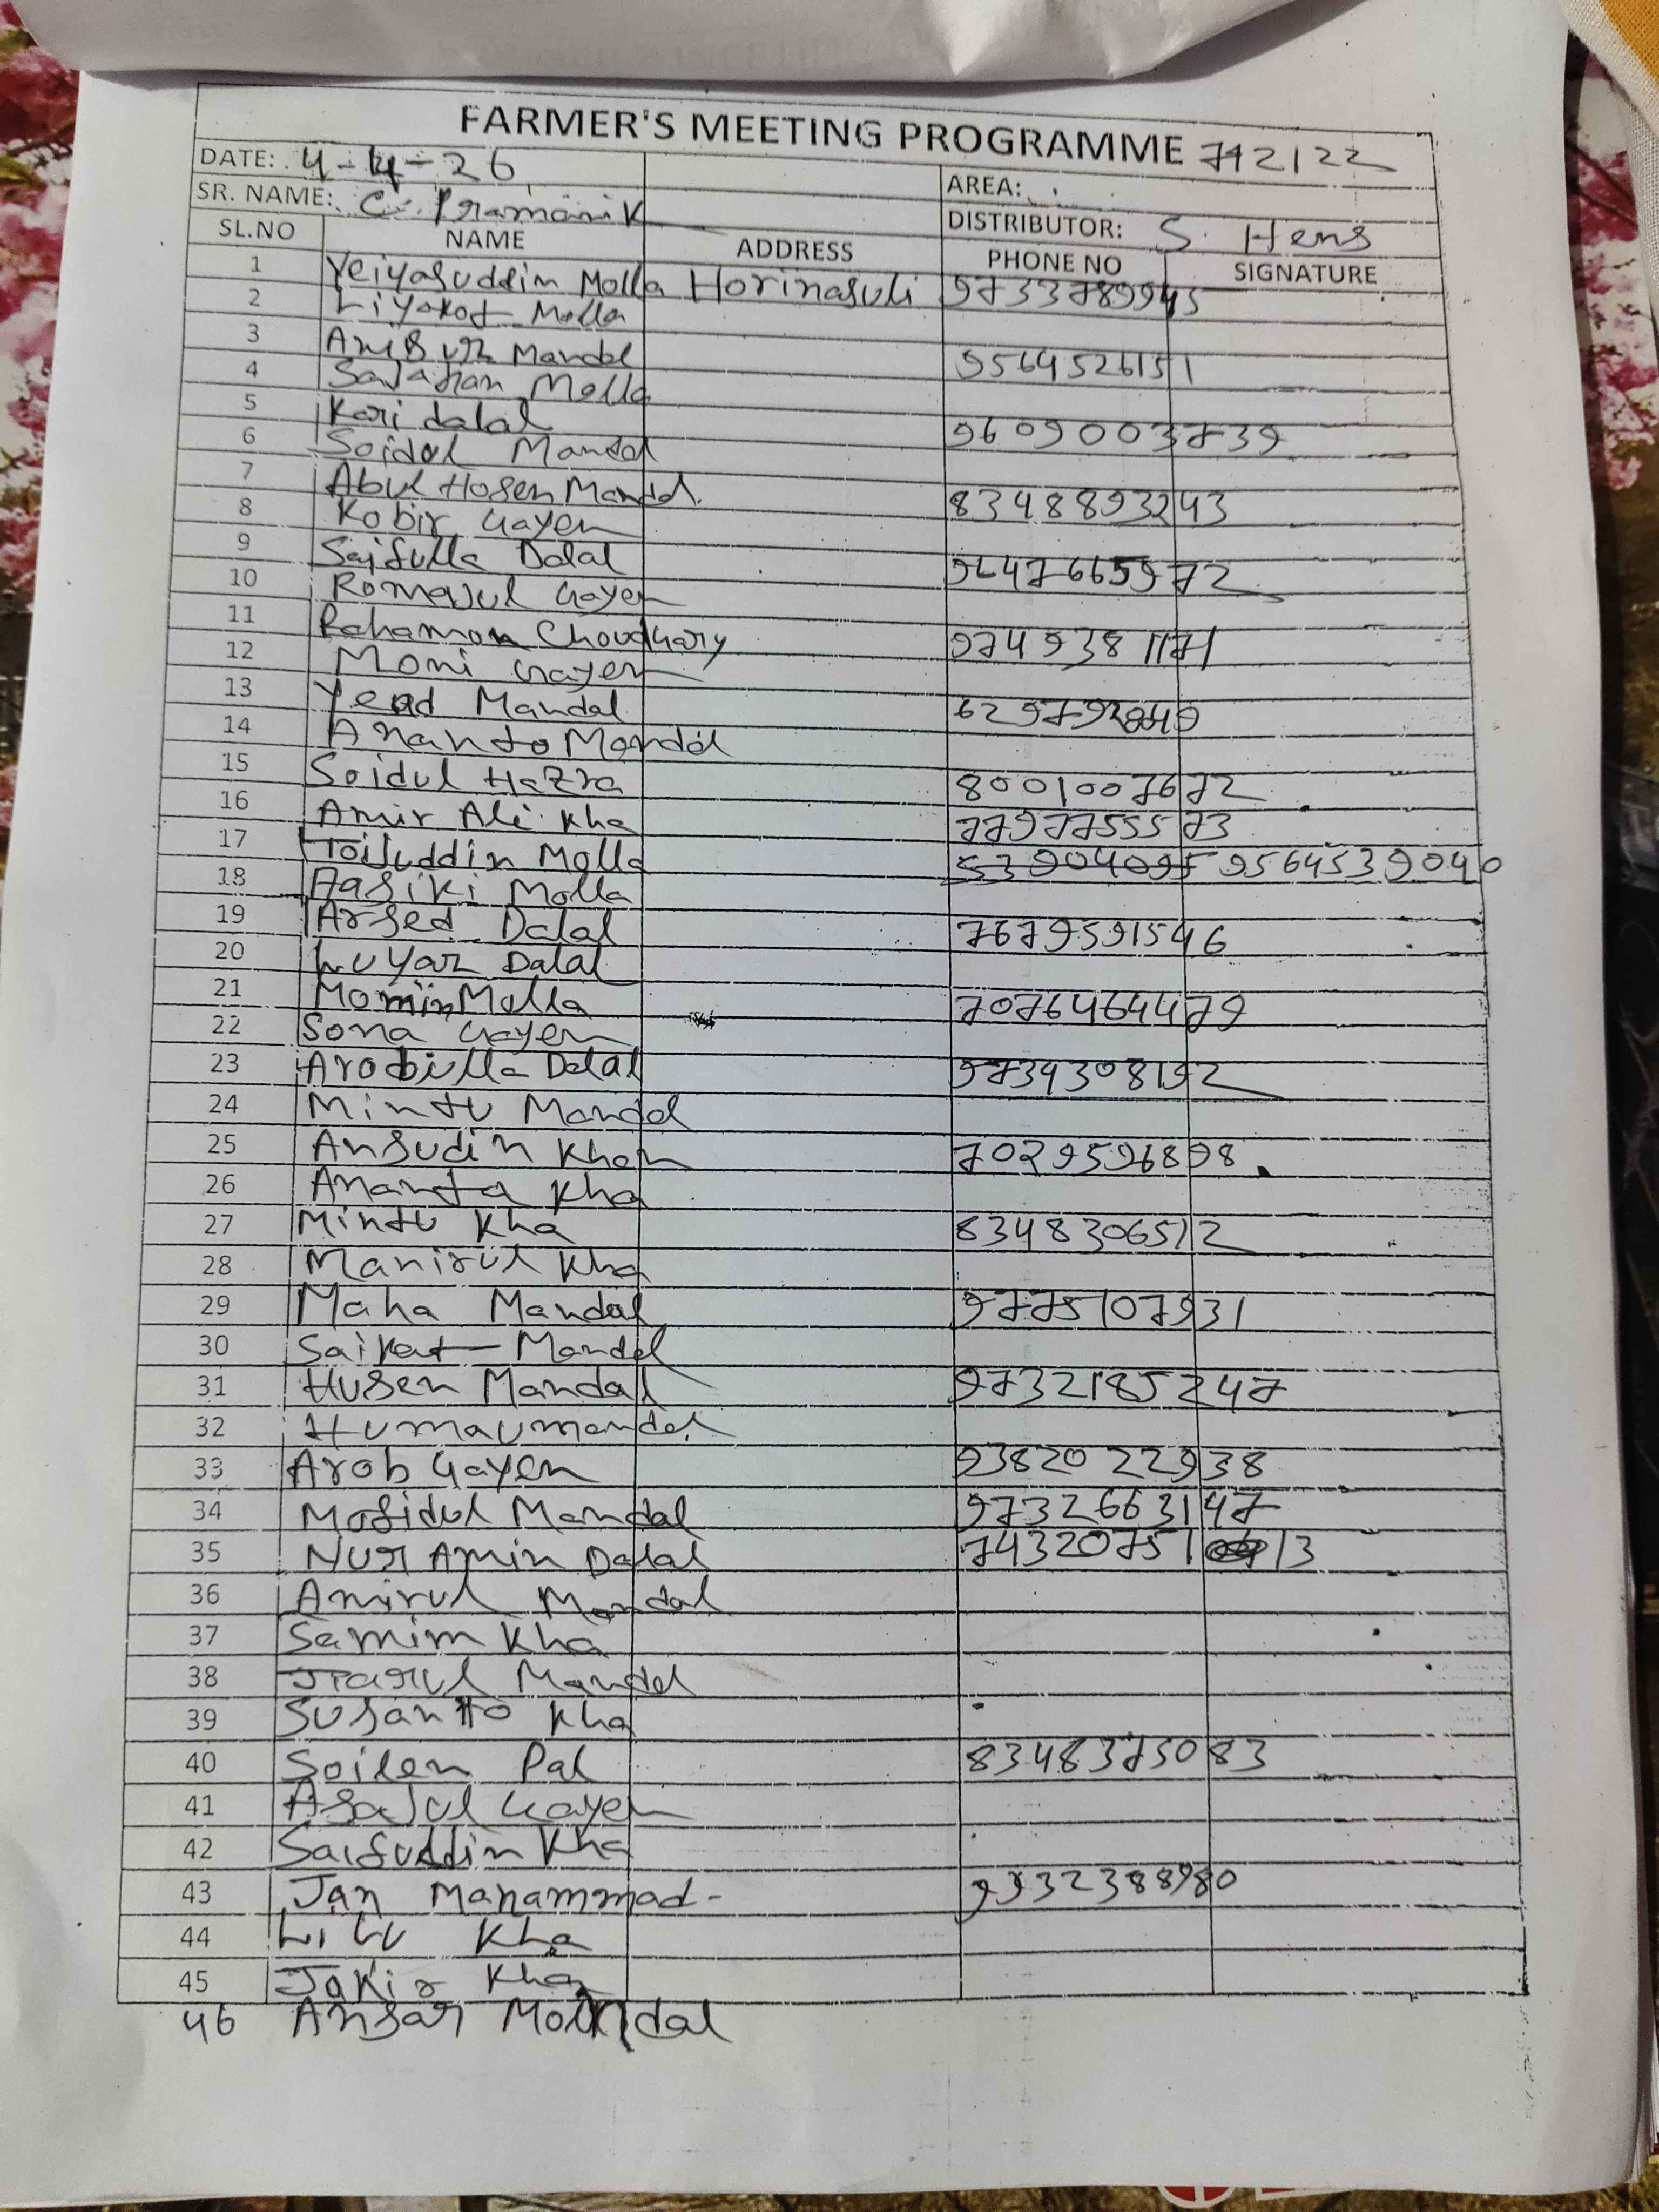 FARMER'S MEETING PROGRAMME 712122
DATE: 4-4-26 AREA:
SR. NAME: C. Pramanik DISTRIBUTOR: S. Hens
SL.NO NAME ADDRESS PHONE NO SIGNATURE
1 Yeiyasuddin Molla Horinasuli 9733789945
2 Liyakot Molla
3 Anisur Mandal 9564526151
4 Sajahan Molla
5 Kari dalal 9609003739
6 Soidul Mandal
7 Abul Hosen Mandal. 8348893243
8 Kobir Gayen
9 Saifulla Dalal 9647665972
10 Romajul Gayen
11 Rahaman Choudhary 9749381171
12 Moni Gayen
13 Yead Mandal
14 Ananto Mondal
15 Soidul Hazra 8001007672
16 Amir Ali Kha 7797755573
17 Toijuddin Molla 9564539040
18 Aasiki Molla
19 Arsed Dalal 7679591546
20 Luyar Dalal
21 Momin Molla 7076464479
22 Sona Gayen
23 Arobiulla Dalal 9734308192
24 Mintu Mondal
25 Ansudin Khan 7029596898
26 Ananta Kha
27 Mintu Kha 8348306512
28 Manirul Kha
29 Maha Mandal 9775107931
30 Saikat Mondal
31 Husen Mandal 9732185247
32 Humaumandal
33 Arob Gayen 9382022938
34 Mosidul Mandal 9732663147
35 Nur Amin Dalal 74320751 13
36 Amirul Mondal
37 Samim Kha
38 Mandal
39 Susanto Kha
40 Soilen Pal 8348375083
41 Asajul Gayen
42 Saifuddin Kha
43 Jan Mahammad - 9932388980
44 Lilu Kha
45 Jakir Kha
46 Ansar Mondal